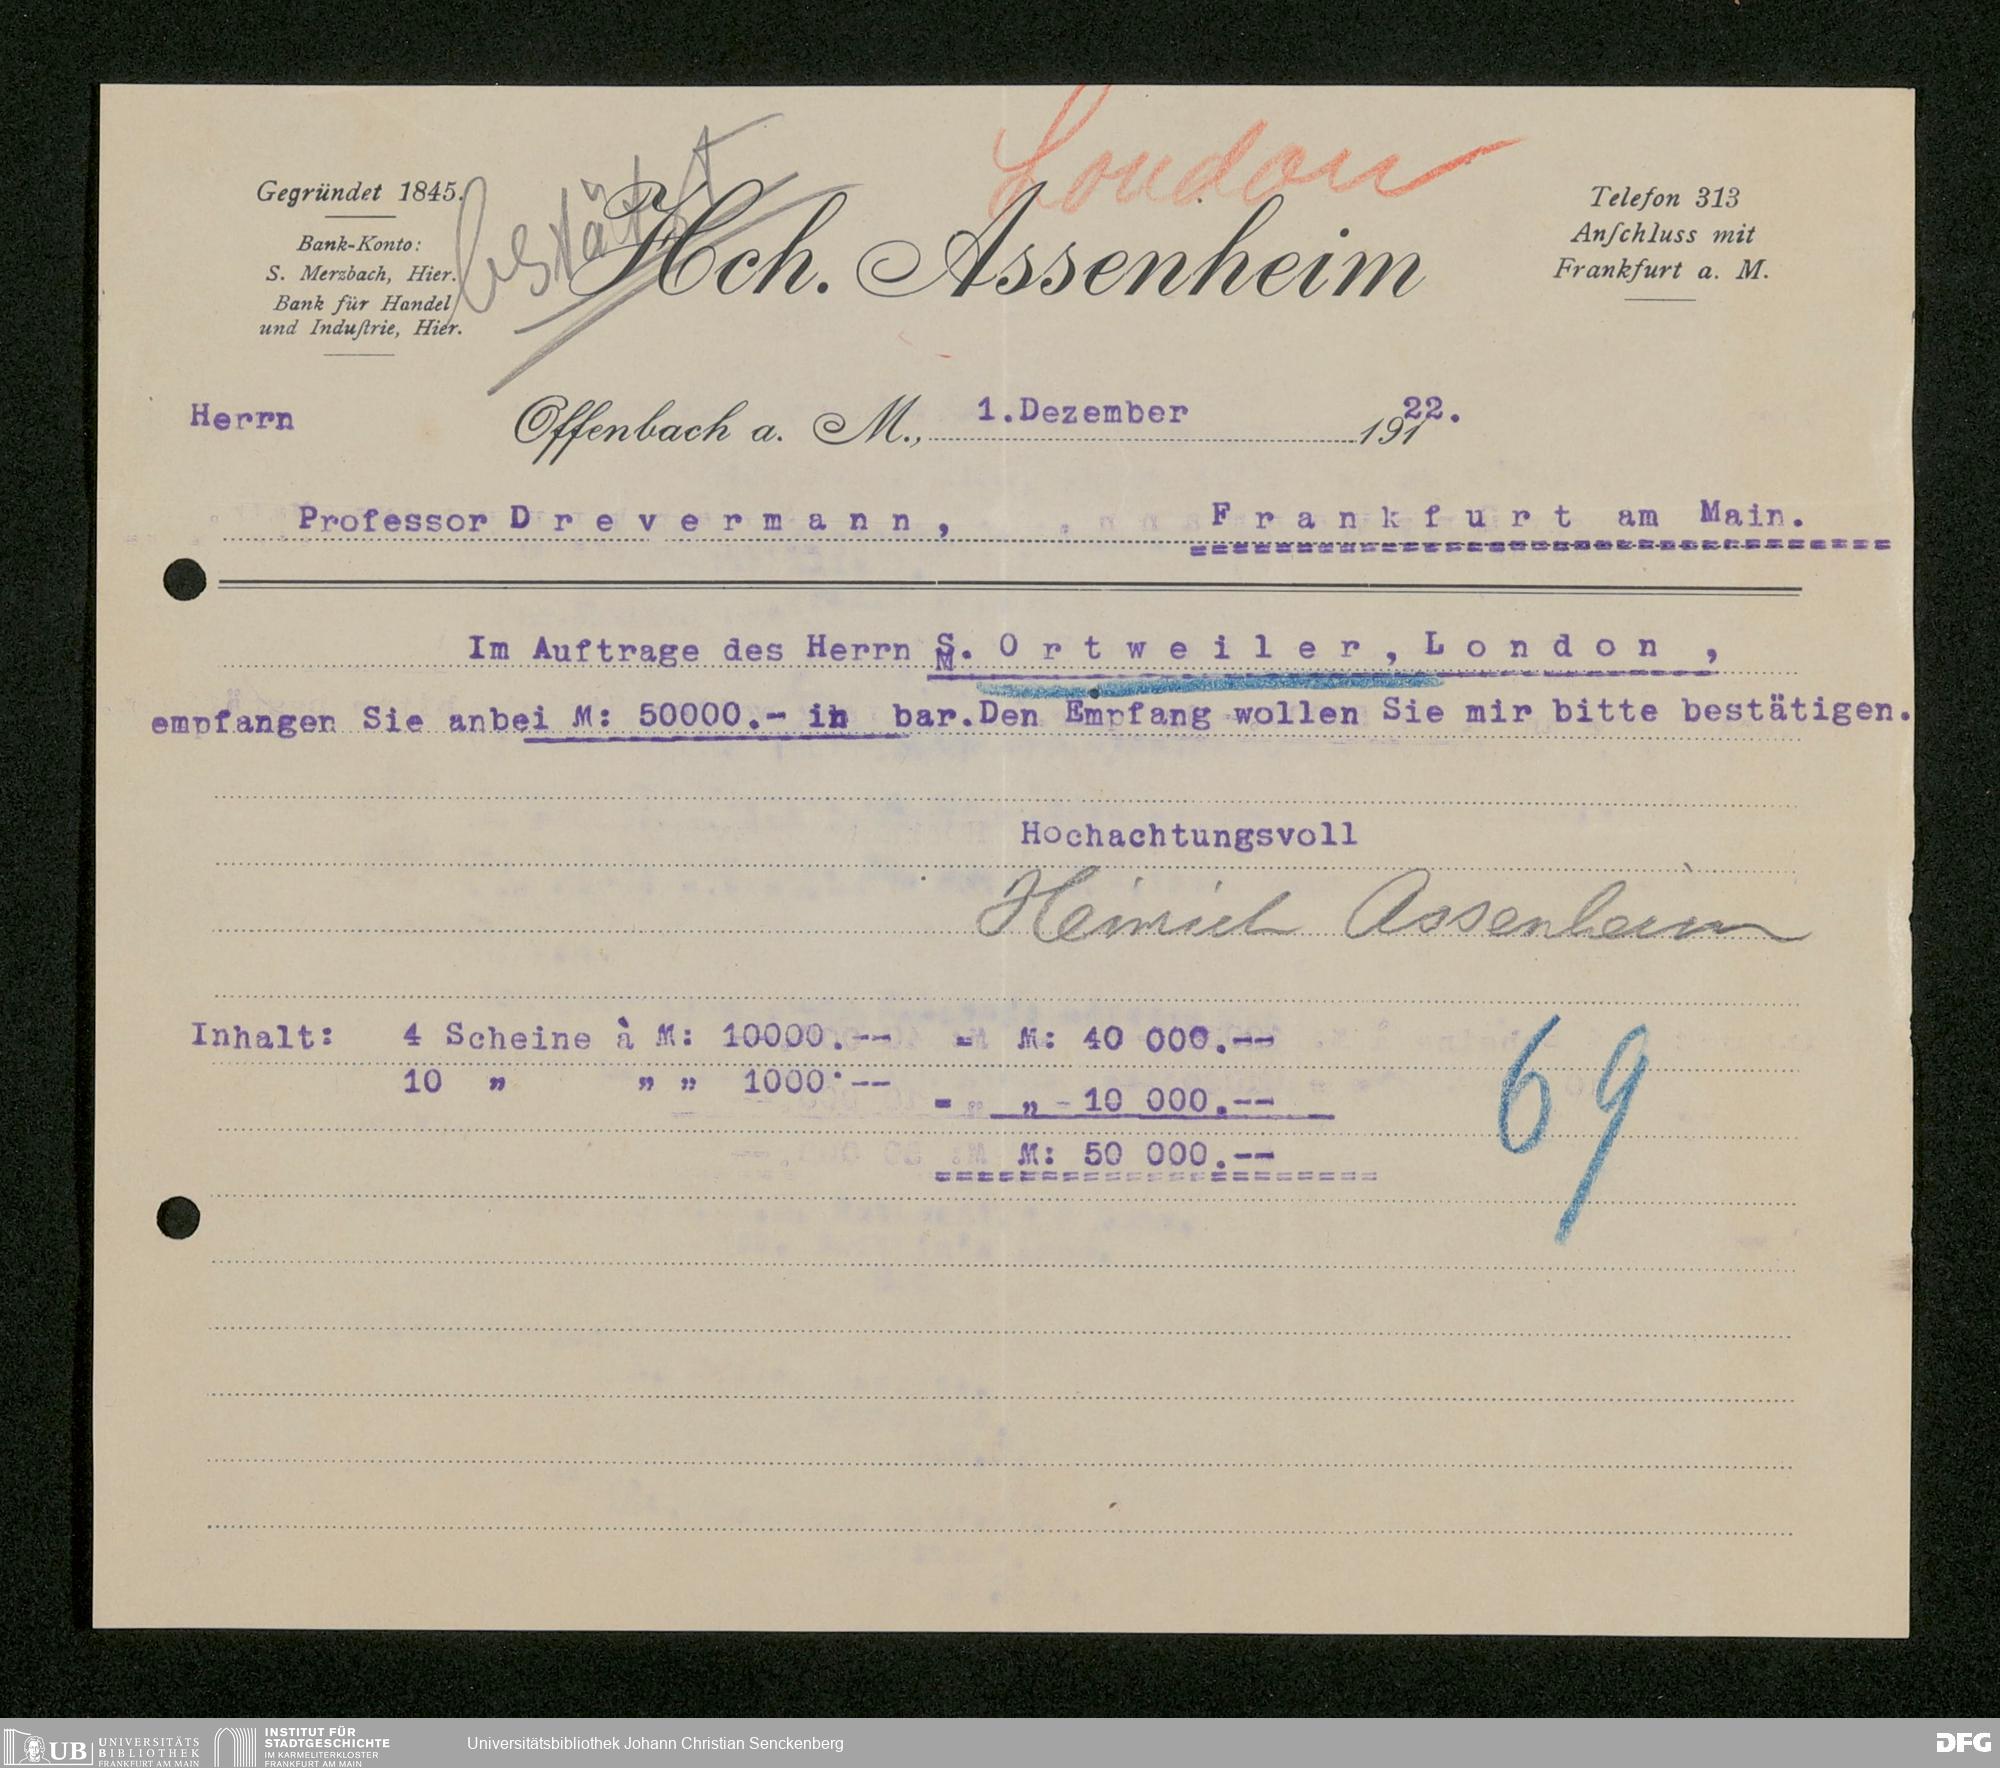 London
bestätigt
Gegründet 1845.
Bank-Konto:
S. Merzbach, Hier.
Bank für Handel
und Induſtrie, Hier.
Hch. Assenheim
Telefon 313
Anſchluss mit
Frankfurt a. M.
Herrn
Offenbach a. M., 1.Dezember 19122.
Professor D r e v e r m a n n , F r a n k f u r t am Main.
Im Auftrage des Herrn S. O r t w e i l e r , L o n d o n ,
empfangen Sie anbei M: 50000.- in bar.Den Empfang wollen Sie mir bitte bestätigen.
Hochachtungsvoll
Heinrich Assenheim
Inhalt: 4 Scheine à M: 10000.-- = M: 40 000.--
10 „ „ „ 1000.-- = „ 10 000.--
M: 50 000.--
69
UB UNIVERSITÄTS
BIBLIOTHEK
FRANKFURT AM MAIN
INSTITUT FÜR
STADTGESCHICHTE
IM KARMELITERKLOSTER
FRANKFURT AM MAIN
Universitätsbibliothek Johann Christian Senckenberg
DFG